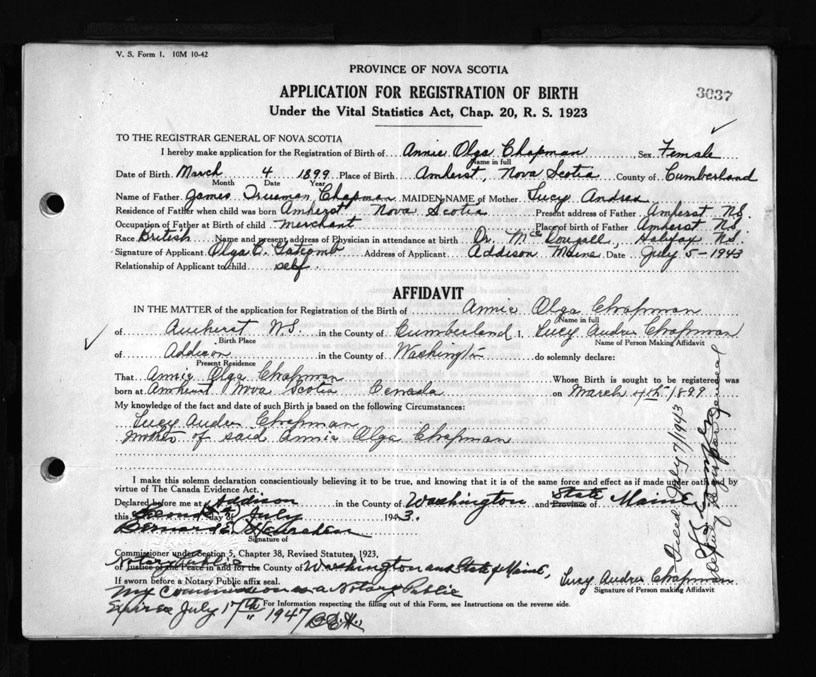 V. S. Form 1. 10M 10-42
PROVINCE OF NOVA SCOTIA
APPLICATION FOR REGISTRATION OF BIRTH
3037
Under the Vital Statistics Act, Chap. 20, R. S. 1923
TO THE REGISTRAR GENERAL OF NOVA SCOTIA
I hereby make application for the Registration of Birth of Annie Olga Chapman Sex Female
Name in full
Date of Birth March 4 1899 Place of Birth Amherst, Nova Scotia County of Cumberland
Month Date Year
Name of Father James Trueman Chapman MAIDEN NAME of Mother Lucy Andres
Residence of Father when child was born Amherst Nova Scotia Present address of Father Amherst N.S.
Occupation of Father at Birth of child merchant Place of birth of Father Amherst N.S.
Race British Name and present address of Physician in attendance at birth Dr. McDougall, Halifax N.S.
Signature of Applicant Olga C. Gatcomb Address of Applicant Addison Maine Date July 5-1943
Relationship of Applicant to child self.
AFFIDAVIT
IN THE MATTER of the application for Registration of the Birth of Annie Olga Chapman
Name in full
of Amherst N.S. in the County of Cumberland I, Lucy Andres Chapman
Birth Place Name of Person Making Affidavit
of Addison in the County of Washington do solemnly declare:
Present Residence
That Annie Olga Chapman Whose Birth is sought to be registered was
born at Amherst Nova Scotia Canada on March 4th 1899
My knowledge of the fact and date of such Birth is based on the following Circumstances:
Lucy Andres Chapman
mother of said Annie Olga Chapman
I make this solemn declaration conscientiously believing it to be true, and knowing that it is of the same force and effect as if made under oath by
virtue of The Canada Evidence Act.
Declared before me at Addison in the County of Washington and Province of State Maine
this day of July 1943.
Signature of
Commissioner under Section 5, Chapter 38, Revised Statutes, 1923,
Notary Public
or Justice of the Peace in and for the County of Washington and State of Maine,
If sworn before a Notary Public affix seal.
Lucy Andres Chapman
Signature of Person making Affidavit
My Commission as a Notary Public
Expires July 17th 1947 B.E.H.
For Information respecting the filling out of this Form, see Instructions on the reverse side.
July 7/1943
Deputy Registrar General